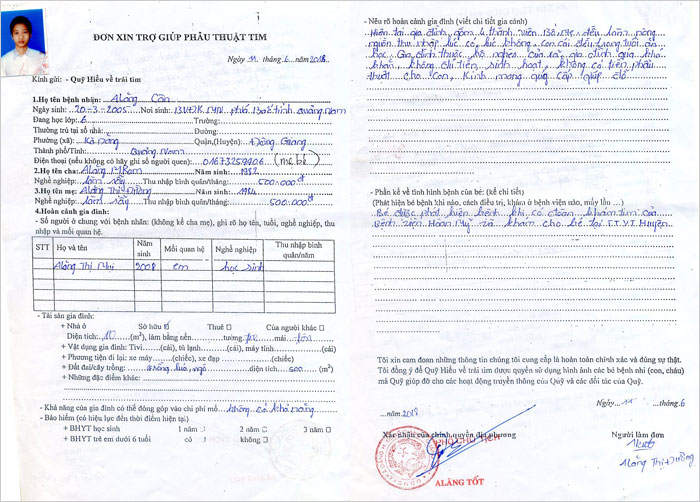 ĐƠN XIN TRỢ GIÚP PHẪU THUẬT TIM
Ngày 11 tháng 6 năm 2018
Kính gửi: - Quỹ Hiểu về trái tim
1.Họ tên bệnh nhân: Alăng Căn
Ngày sinh: 20-3-2005 Nơi sinh: BVĐK phía Bắc tỉnh Quảng Nam
Đang học lớp: 6 Trường:
Thường trú tại số nhà: Đường:
Phường (xã): Kà Dăng Quận,(Huyện): Đông Giang
Thành phố/Tỉnh: Quảng Nam
Điện thoại (nếu không có hãy ghi số người quen): 01673259906 (mẹ bé)
2.Họ tên cha: Alăng Năm sinh: 1982
Nghề nghiệp: làm rẫy Thu nhập bình quân/tháng: 500.000đ
3.Họ tên mẹ: Alăng Thị Đường Năm sinh: 1984
Nghề nghiệp: làm rẫy Thu nhập bình quân/tháng: 500.000đ
4.Hoàn cảnh gia đình:
- Số người ở chung với bệnh nhân: (không kể cha mẹ), ghi rõ họ tên, tuổi, nghề nghiệp, thu
nhập và mối quan hệ.
STT Họ và tên Năm sinh Mối quan hệ Nghề nghiệp Thu nhập bình quân/năm
Alăng Thị 2008 em học sinh
- Tài sản gia đình:
+ Nhà ở Sở hữu Thuê Của người khác
Diện tích: 40 (m²), làm bằng nền tường mái tôn
+ Vật dụng gia đình: Tivi (cái), tủ lạnh (cái), máy tính (cái)
+ Phương tiện đi lại: xe máy (chiếc), xe đạp (chiếc)
+ Đất đai/cây trồng: trồng lúa, ngô diện tích 500 (m²)
+ Những đặc điểm khác:
- Khả năng của gia đình có thể đóng góp vào chi phí mổ không có khả năng
- Bảo hiểm (có hiệu lực đến thời điểm hiện tại)
+ BHYT học sinh 1 năm 2 năm 3 năm
+ BHYT trẻ em dưới 6 tuổi có không
- Nêu rõ hoàn cảnh gia đình (viết chi tiết gia cảnh)
Hiện tại gia đình gồm 4 thành viên. Bố mẹ đều làm nông
nguồn thu nhập lúc có lúc không, con cái đều trong tuổi ăn
học. Gia đình thuộc hộ nghèo của xã gia đình quá khó
khăn không chi tiền sinh hoạt, không có tiền phẫu
thuật cho con, Kính mong quý cấp giúp đỡ.
- Phần kể về tình hình bệnh của bé: (kể chi tiết)
(Phát hiện bệnh khi nào, cách điều trị, khám ở bệnh viện nào, mấy lần ...)
Bé được phát hiện bệnh khi có đoàn khám tim của
Bệnh viện Hoàn Mỹ về khám cho bé tại T.T.Y.T Huyện
Tôi xin cam đoan những thông tin chúng tôi cung cấp là hoàn toàn chính xác và đúng sự thật.
Tôi đồng ý để Quỹ Hiểu về trái tim được quyền sử dụng hình ảnh các bé bệnh nhi (con, cháu)
mà Quỹ giúp đỡ cho các hoạt động truyền thông của Quỹ và các đối tác của Quỹ.
Ngày 11 tháng 6
năm 2018
Xác nhận của chính quyền địa phương Người làm đơn
PHÓ CHỦ TỊCH
Alăng Thị Đường
ALĂNG TỐT